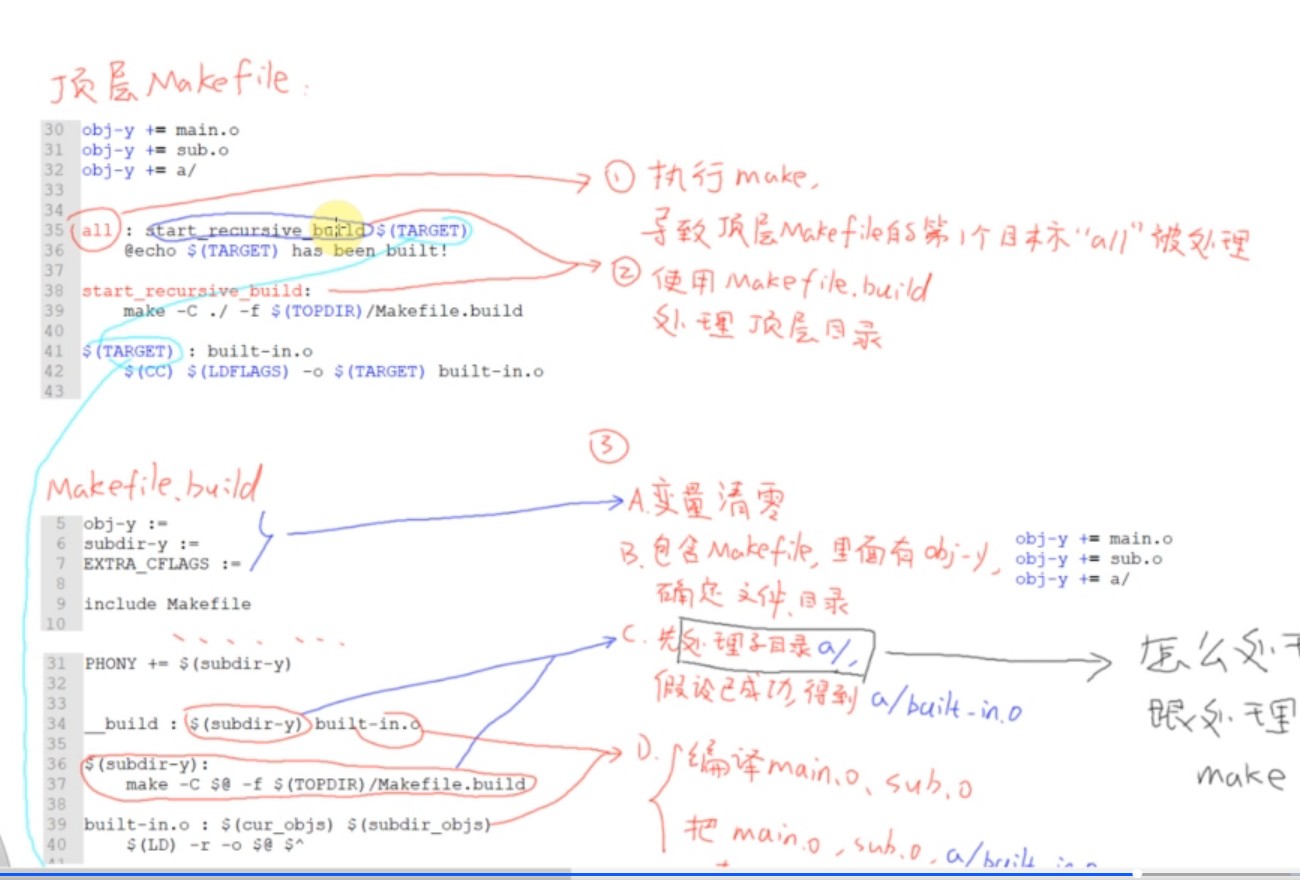 顶层Makefile:
30 obj-y += main.o
31 obj-y += sub.o
32 obj-y += a/
33
34
35 all : start_recursive_build $(TARGET)
36 @echo $(TARGET) has been built!
37
38 start_recursive_build:
39 make -C ./ -f $(TOPDIR)/Makefile.build
40
41 $(TARGET) : built-in.o
42 $(CC) $(LDFLAGS) -o $(TARGET) built-in.o
43
① 执行make,
导致顶层Makefile的第1个目标"all"被处理
② 使用Makefile.build
处理顶层目录
③
Makefile.build
5 obj-y :=
6 subdir-y :=
7 EXTRA_CFLAGS :=
8
9 include Makefile
10
31 PHONY += $(subdir-y)
32
33
34 __build : $(subdir-y) built-in.o
35
36 $(subdir-y):
37 make -C $@ -f $(TOPDIR)/Makefile.build
38
39 built-in.o : $(cur_objs) $(subdir_objs)
40 $(LD) -r -o $@ $^
41
A.变量清零
B.包含Makefile,里面有obj-y,
确定文件、目录
obj-y += main.o
obj-y += sub.o
obj-y += a/
C.先处理子目录a/,
假设已成功,得到a/built-in.o
怎么处
跟处理
make
D.编译main.o、sub.o
把main.o,sub.o,a/built-in.o